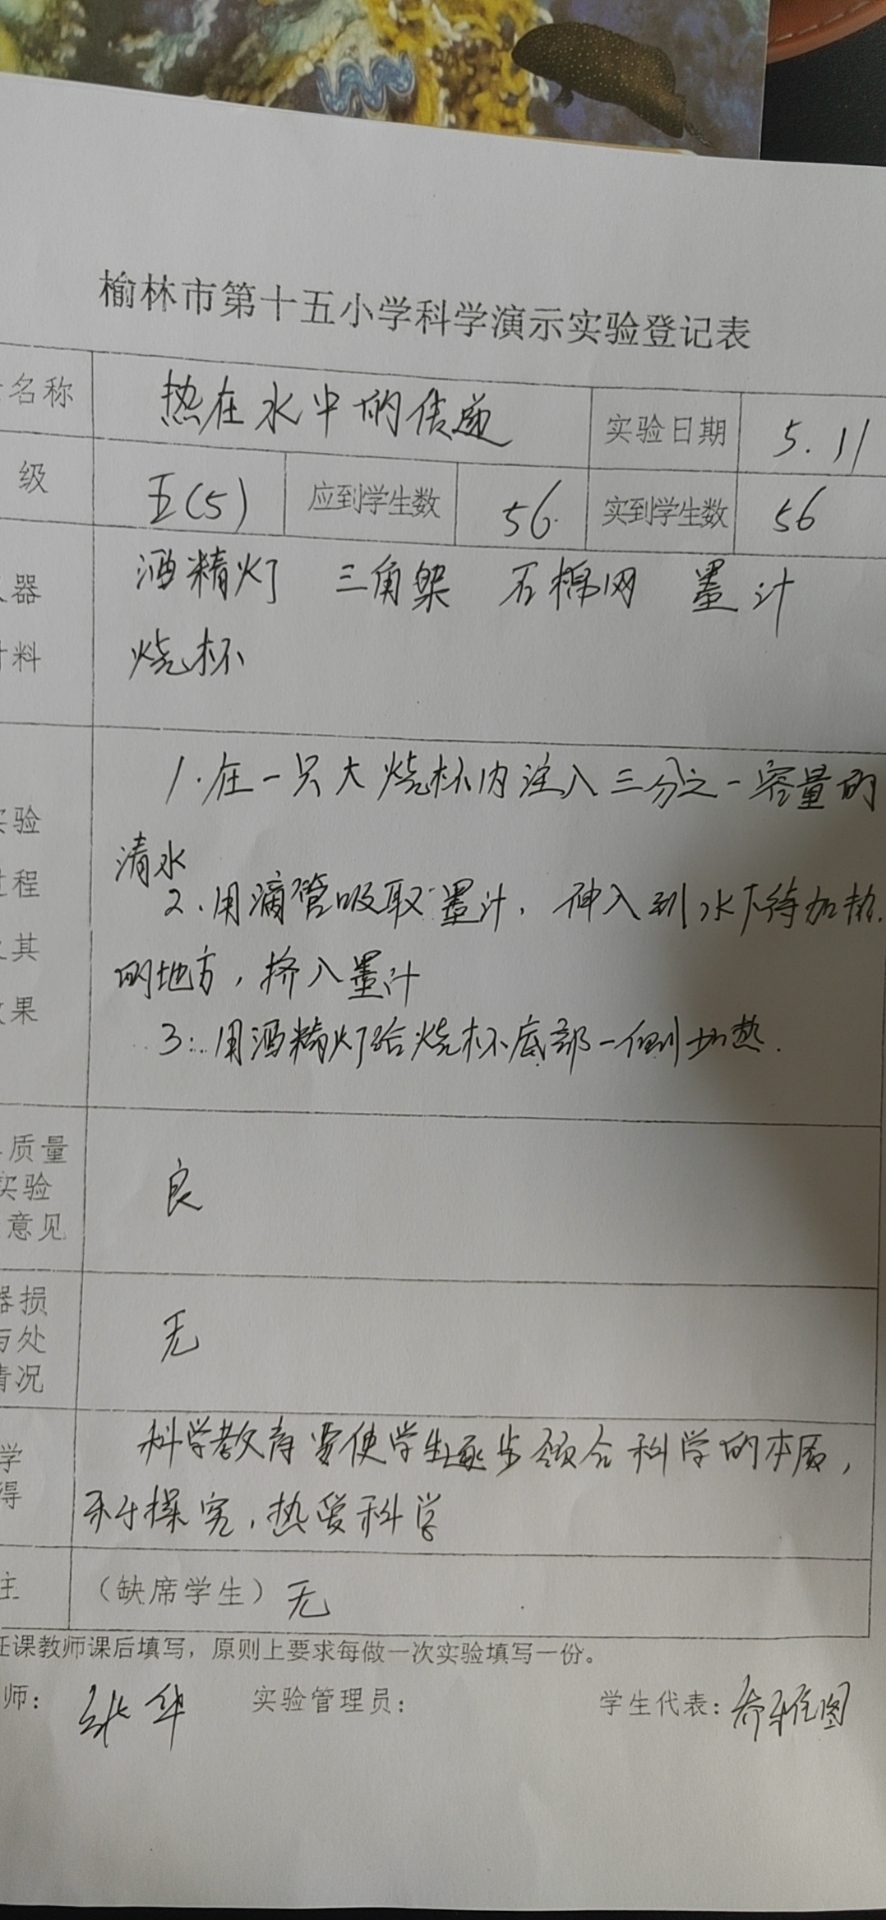 榆林市第十五小学科学演示实验登记表
名称 热在水中的传递 实验日期 5.11
级 五(5) 应到学生数 56 实到学生数 56
器 酒精灯 三角架 石棉网 墨汁
料 烧杯
1.在一只大烧杯内注入三分之一容量的
验
清水
程 2.用滴管吸取墨汁,伸入到水下待加热
其 的地方,挤入墨汁
果 3.用酒精灯给烧杯底部一侧加热.
质量
实验 良
意见
器损
与处 无
情况
学 科学教育要使学生逐步领会科学的本质,
得 乐于探究,热爱科学
注 (缺席学生) 无
任课教师课后填写,原则上要求每做一次实验填写一份。
师: 张华 实验管理员: 学生代表: 乔雅图